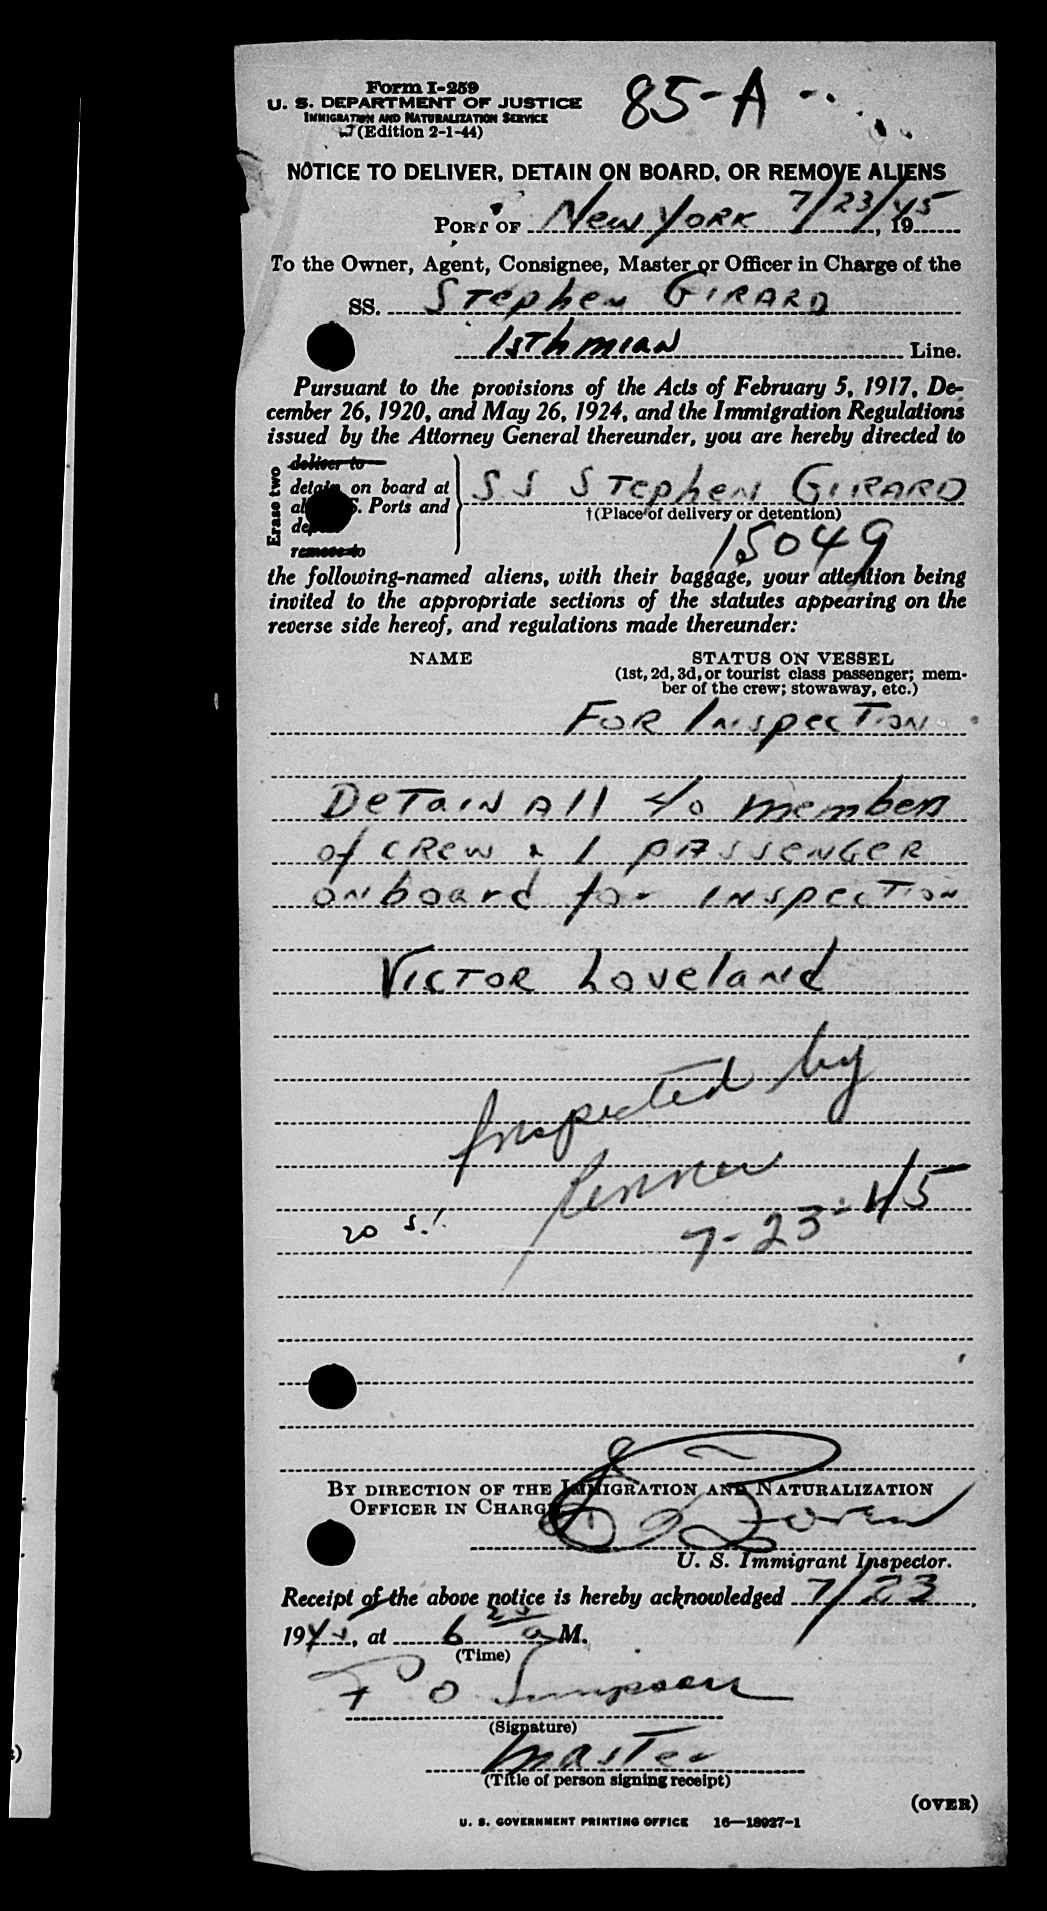 Form I-259
85-A
U. S. DEPARTMENT OF JUSTICE
IMMIGRATION AND NATURALIZATION SERVICE
(Edition 2-1-44)
NOTICE TO DELIVER, DETAIN ON BOARD, OR REMOVE ALIENS
PORT OF New York 7/23/45, 19
To the Owner, Agent, Consignee, Master or Officer in Charge of the
SS. Stephen Girard
Isthmian Line.
Pursuant to the provisions of the Acts of February 5, 1917, De-
cember 26, 1920, and May 26, 1924, and the Immigration Regulations
issued by the Attorney General thereunder, you are hereby directed to
Erase two
deliver to
detain on board at
Ports and
remove to
SS Stephen Girard
†(Place of delivery or detention)
15049
the following-named aliens, with their baggage, your attention being
invited to the appropriate sections of the statutes appearing on the
reverse side hereof, and regulations made thereunder:
NAME STATUS ON VESSEL
(1st, 2d, 3d, or tourist class passenger; mem-
ber of the crew; stowaway, etc.)
For Inspection
Detain All members
of crew & 1 passenger
onboard for inspection
Victor Loveland
Inspected by
7-23-45
20
BY DIRECTION OF THE IMMIGRATION AND NATURALIZATION
OFFICER IN CHARGE
U. S. Immigrant Inspector.
Receipt of the above notice is hereby acknowledged 7/23,
1945, at 6 a M.
(Time)
F O Simpson
(Signature)
Master
(Title of person signing receipt)
(OVER)
U. S. GOVERNMENT PRINTING OFFICE 16—18927-1